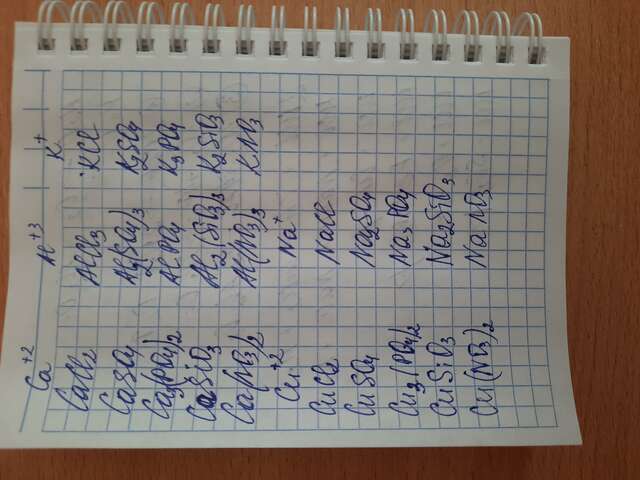 Ca+2 Al+3 K+
CaCl2 AlCl3 KCl
CaSO4 Al2(SO4)3 K2SO4
Ca3(PO4)2 AlPO4 K3PO4
CaSiO3 Al2(SiO3)3 K2SiO3
Ca(NO3)2 Al(NO3)3 KNO3
Cu+2 Na+
CuCl2 NaCl
CuSO4 Na2SO4
Cu3(PO4)2 Na3PO4
CuSiO3 Na2SiO3
Cu(NO3)2 NaNO3